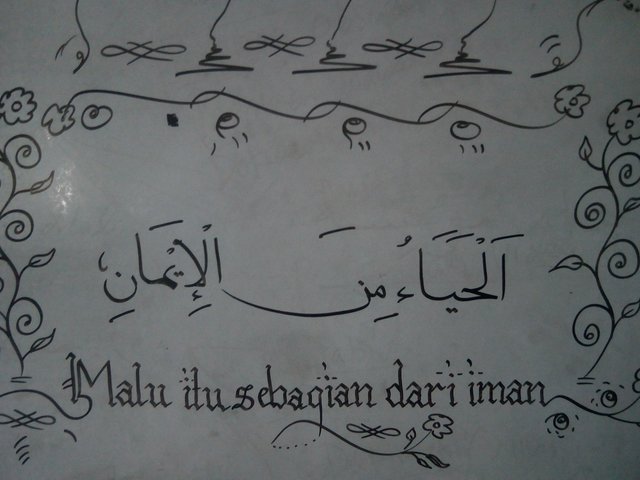 اَلْحَيَاءُ مِنَ الْإِيْمَانِ
Malu itu sebagian dari iman